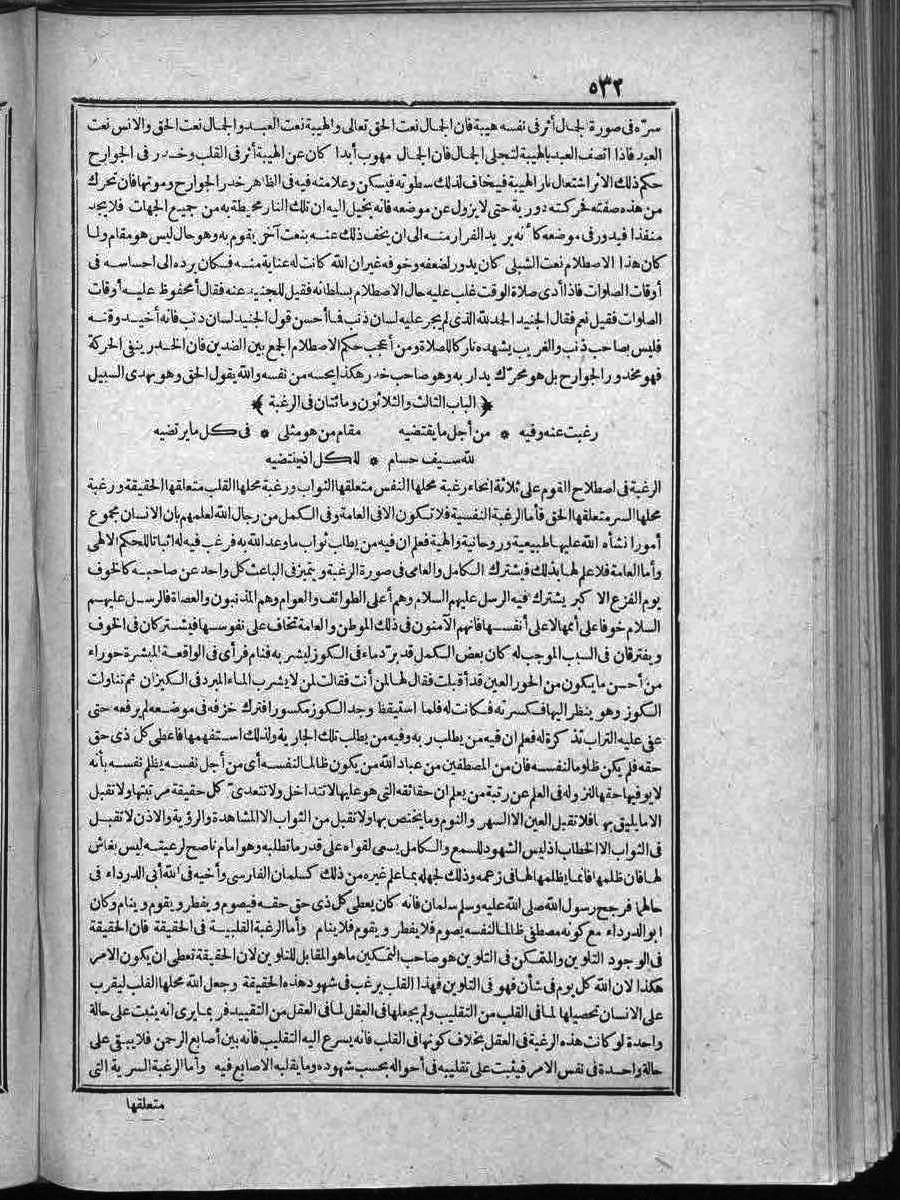 ٥٣٢
سره فى صورة الجمال أثر فى نفسه هيبة فان الجمال نعت الحق تعالى والهيبة نعت العبد والجمال نعت الحق والانس نعت
العبد فاذا اتصف العبد بالهيبة لتجلى الجمال فان الجمال مهوب أبدا كان عن الهيبة أثر فى القلب وخدر فى الجوارح
حكم ذلك الاثر اشتعال نار الهيبة فيخاف لذلك سطوته فيسكن وعلامته فيه فى الظاهر خدر الجوارح وموتها فان تحرك
من هذه صفته فحركته دورية حتى لا يزول عن موضعه فانه يخيل اليه ان تلك النار محيطة به من جميع الجهات فلا يجد
منفذا فيدور فى موضعه كأنه يريد الفرار منه الى ان يخف ذلك عنه بنعت آخر يقوم به وهو حال ليس هو مقام ولما
كان هذا الاصطلام نعت الشبلى كان يدور لضعفه وخوفه غير ان الله كانت له عناية منه فكان يرده الى احساسه فى
أوقات الصلوات فاذا أدى صلاة الوقت غلب عليه حال الاصطلام بسلطانه فقيل للجنيد عنه فقال أمحفوظ عليه أوقات
الصلوات فقيل نعم فقال الجنيد الحمد لله الذى لم يجر عليه لسان ذنب فما أحسن قول الجنيد لسان ذنب فانه أخيذ وقته
فليس بصاحب ذنب والغريب يشهده تاركا للصلاة ومن أعجب حكم الاصطلام الجمع بين الضدين فان الخدر ينفى الحركة
فهو مخدور الجوارح بل هو محرّك يدار به وهو صاحب خدر هكذا يحسه من نفسه والله يقول الحق وهو يهدى السبيل
﴿ الباب الثالث والثلاثون ومائتان فى الرغبة ﴾
رغبت عنه وفيه * من أجل ما يقتضيه مقام من هو مثلى * فى كل ما يرتضيه
لله سيف حسام * للكل اذ ينتضيه
الرغبة فى اصطلاح القوم على ثلاثة انحاء رغبة محلها النفس متعلقها الثواب ورغبة محلها القلب متعلقها الحقيقة ورغبة
محلها السر متعلقها الحق فأما الرغبة النفسية فلا تكون الا فى العامة وفى الكمل من رجال الله لعلمهم بان الانسان مجموع
أمور انشأه الله عليها طبيعية وروحانية والهية فعلم ان فيه من يطلب ثواب ما وعد الله به فرغب فيه له اثباتا للحكم الالهى
وأما العامة فلا علم لها بذلك فيشترك الكامل والعامى فى صورة الرغبة ويتميز فى الباعث كل واحد عن صاحبه كالخوف
يوم الفزع الاكبر يشترك فيه الرسل عليهم السلام وهم أعلى الطوائف والعوام وهم المذنبون والعصاة فالرسل عليهم
السلام خوفا على أممها لا على أنفسها فانهم الآمنون فى ذلك الموطن والعامة تخاف على نفوسها فيشتركان فى الخوف
ويفترقان فى السبب الموجب له كان بعض الكمل قد برّد ماء فى الكوز ليشربه فنام فرأى فى الواقعة المبشرة حوراء
من أحسن ما يكون من الحور العين قد أقبلت فقال لها لمن أنت فقالت لمن لا يشرب الماء المبرد فى الكيزان ثم تناولت
الكوز وهو ينظر اليها فكسرته فكانت له فلما استيقظ وجد الكوز مكسورا فترك خزفه فى موضعه لم يرفعه حتى
عفى عليه التراب تذكرة له فعلم ان فيه من يطلب ربه وفيه من يطلب تلك الجارية ولذلك استفهمها فاعطى كل ذى حق
حقه فلم يكن ظلوما لنفسه فان من المصطفين من عباد الله من يكون ظالما لنفسه أى من أجل نفسه يظلم نفسه بأنه
لا يوفيها حقها لنزوله فى العلم عن رتبة من يعلم ان حقائقه التى هو عليها لا تتداخل ولا تتعدى كل حقيقة مرتبتها ولا تقبل
الا ما يليق بها فلا تقبل العين الا السهر والنوم وما يختص بها ولا تقبل من الثواب الا المشاهدة والرؤية والاذن لا تقبل
فى الثواب الا الخطاب اذ ليس الشهود للسمع والكامل يسعى لقواه على قدر ما تطلبه وهو امام ناصح لرعيته ليس بغاش
لها فان ظلمها فانما يظلمها لها فى زعمه وذلك لجهله بما علم غيره من ذلك كسلمان الفارسى وأخيه فى الله أبى الدرداء فى
حالهما فرجح رسول الله صلى الله عليه وسلم سلمان فانه كان يعطى كل ذى حق حقه فيصوم ويفطر ويقوم وينام وكان
ابو الدرداء مع كونه مصطفى ظالما لنفسه يصوم فلا يفطر ويقوم فلا ينام وأما الرغبة القلبية فى الحقيقة فان الحقيقة
فى الوجود التلوين والمتمكن فى التلوين هو صاحب التمكين ما هو المقابل للتلوين لان الحقيقة تعطى ان يكون الامر
هكذا لان الله كل يوم فى شأن فهو فى التلوين فهذا القلب يرغب فى شهود هذه الحقيقة وجعل الله محلها القلب ليقرب
على الانسان تحصيلها لما فى القلب من التقليب ولم يجعلها فى العقل لما فى العقل من التقييد فربما يرى انه يثبت على حالة
واحدة لو كانت هذه الرغبة فى العقل بخلاف كونها فى القلب فانه يسرع اليه التقليب فانه بين أصابع الرحمن فلا يبقى على
حالة واحدة فى نفس الامر فيثبت على تقليبه فى أحواله بحسب شهوده وما يقلبه الاصابع فيه وأما الرغبة السرية التى
متعلقها